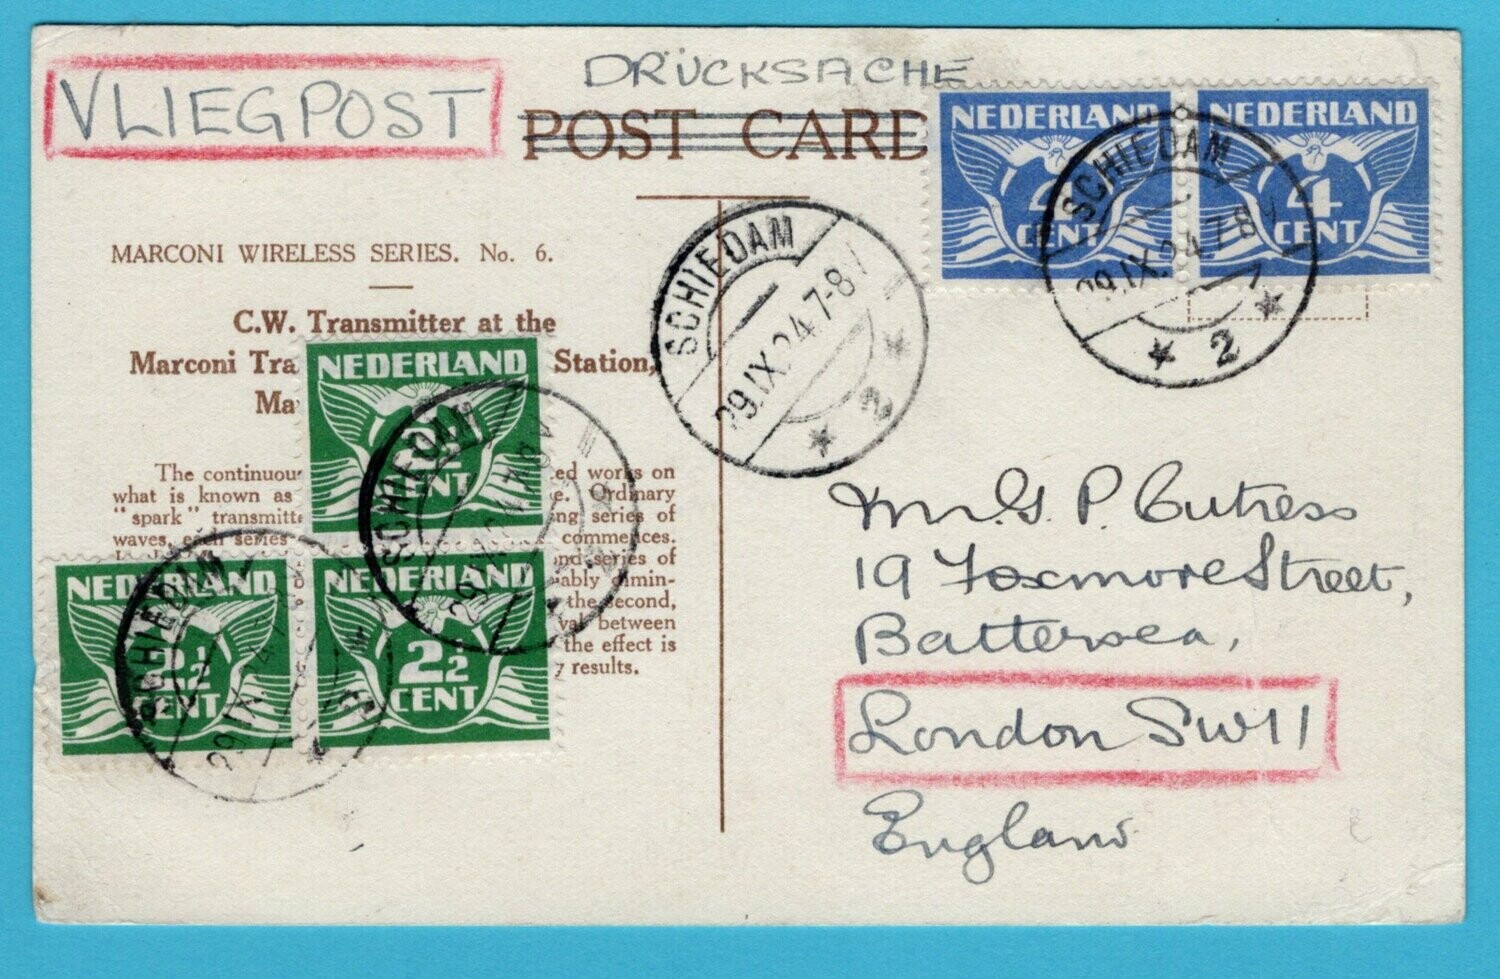 VLIEGPOST
DRÜCKSACHE
POST CARD
MARCONI WIRELESS SERIES. No. 6.
C.W. Transmitter at the
Marconi Tra Station,
Ma
The continuou ed works on
what is known as e. Ordinary
"spark" transmitt ng series of
waves, each series commences.
ond series of
ably dimin-
the second,
val between
the effect is
y results.
NEDERLAND
4
CENT
NEDERLAND
4
CENT
SCHIEDAM
29.IX.24.7-8V
2
SCHIEDAM
29.IX.24.7-8V
2
NEDERLAND
2½
CENT
NEDERLAND
2½
CENT
NEDERLAND
2½
CENT
SCHIEDAM
29.IX
SCHIEDAM
29.IX.24
Mr. G. P. Cutress
19 Foxmore Street,
Battersea,
London SW11
England